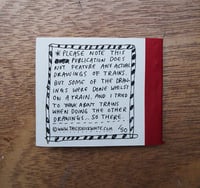 * PLEASE NOTE THIS
PUBLICATION DOES
NOT FEATURE ANY ACTUAL
DRAWINGS OF TRAINS.
BUT SOME OF THE DRAW-
INGS WERE DONE WHILST
ON A TRAIN. AND I TRIED
TO THINK ABOUT TRAINS
WHEN DOING THE OTHER
DRAWINGS. SO THERE.
/50